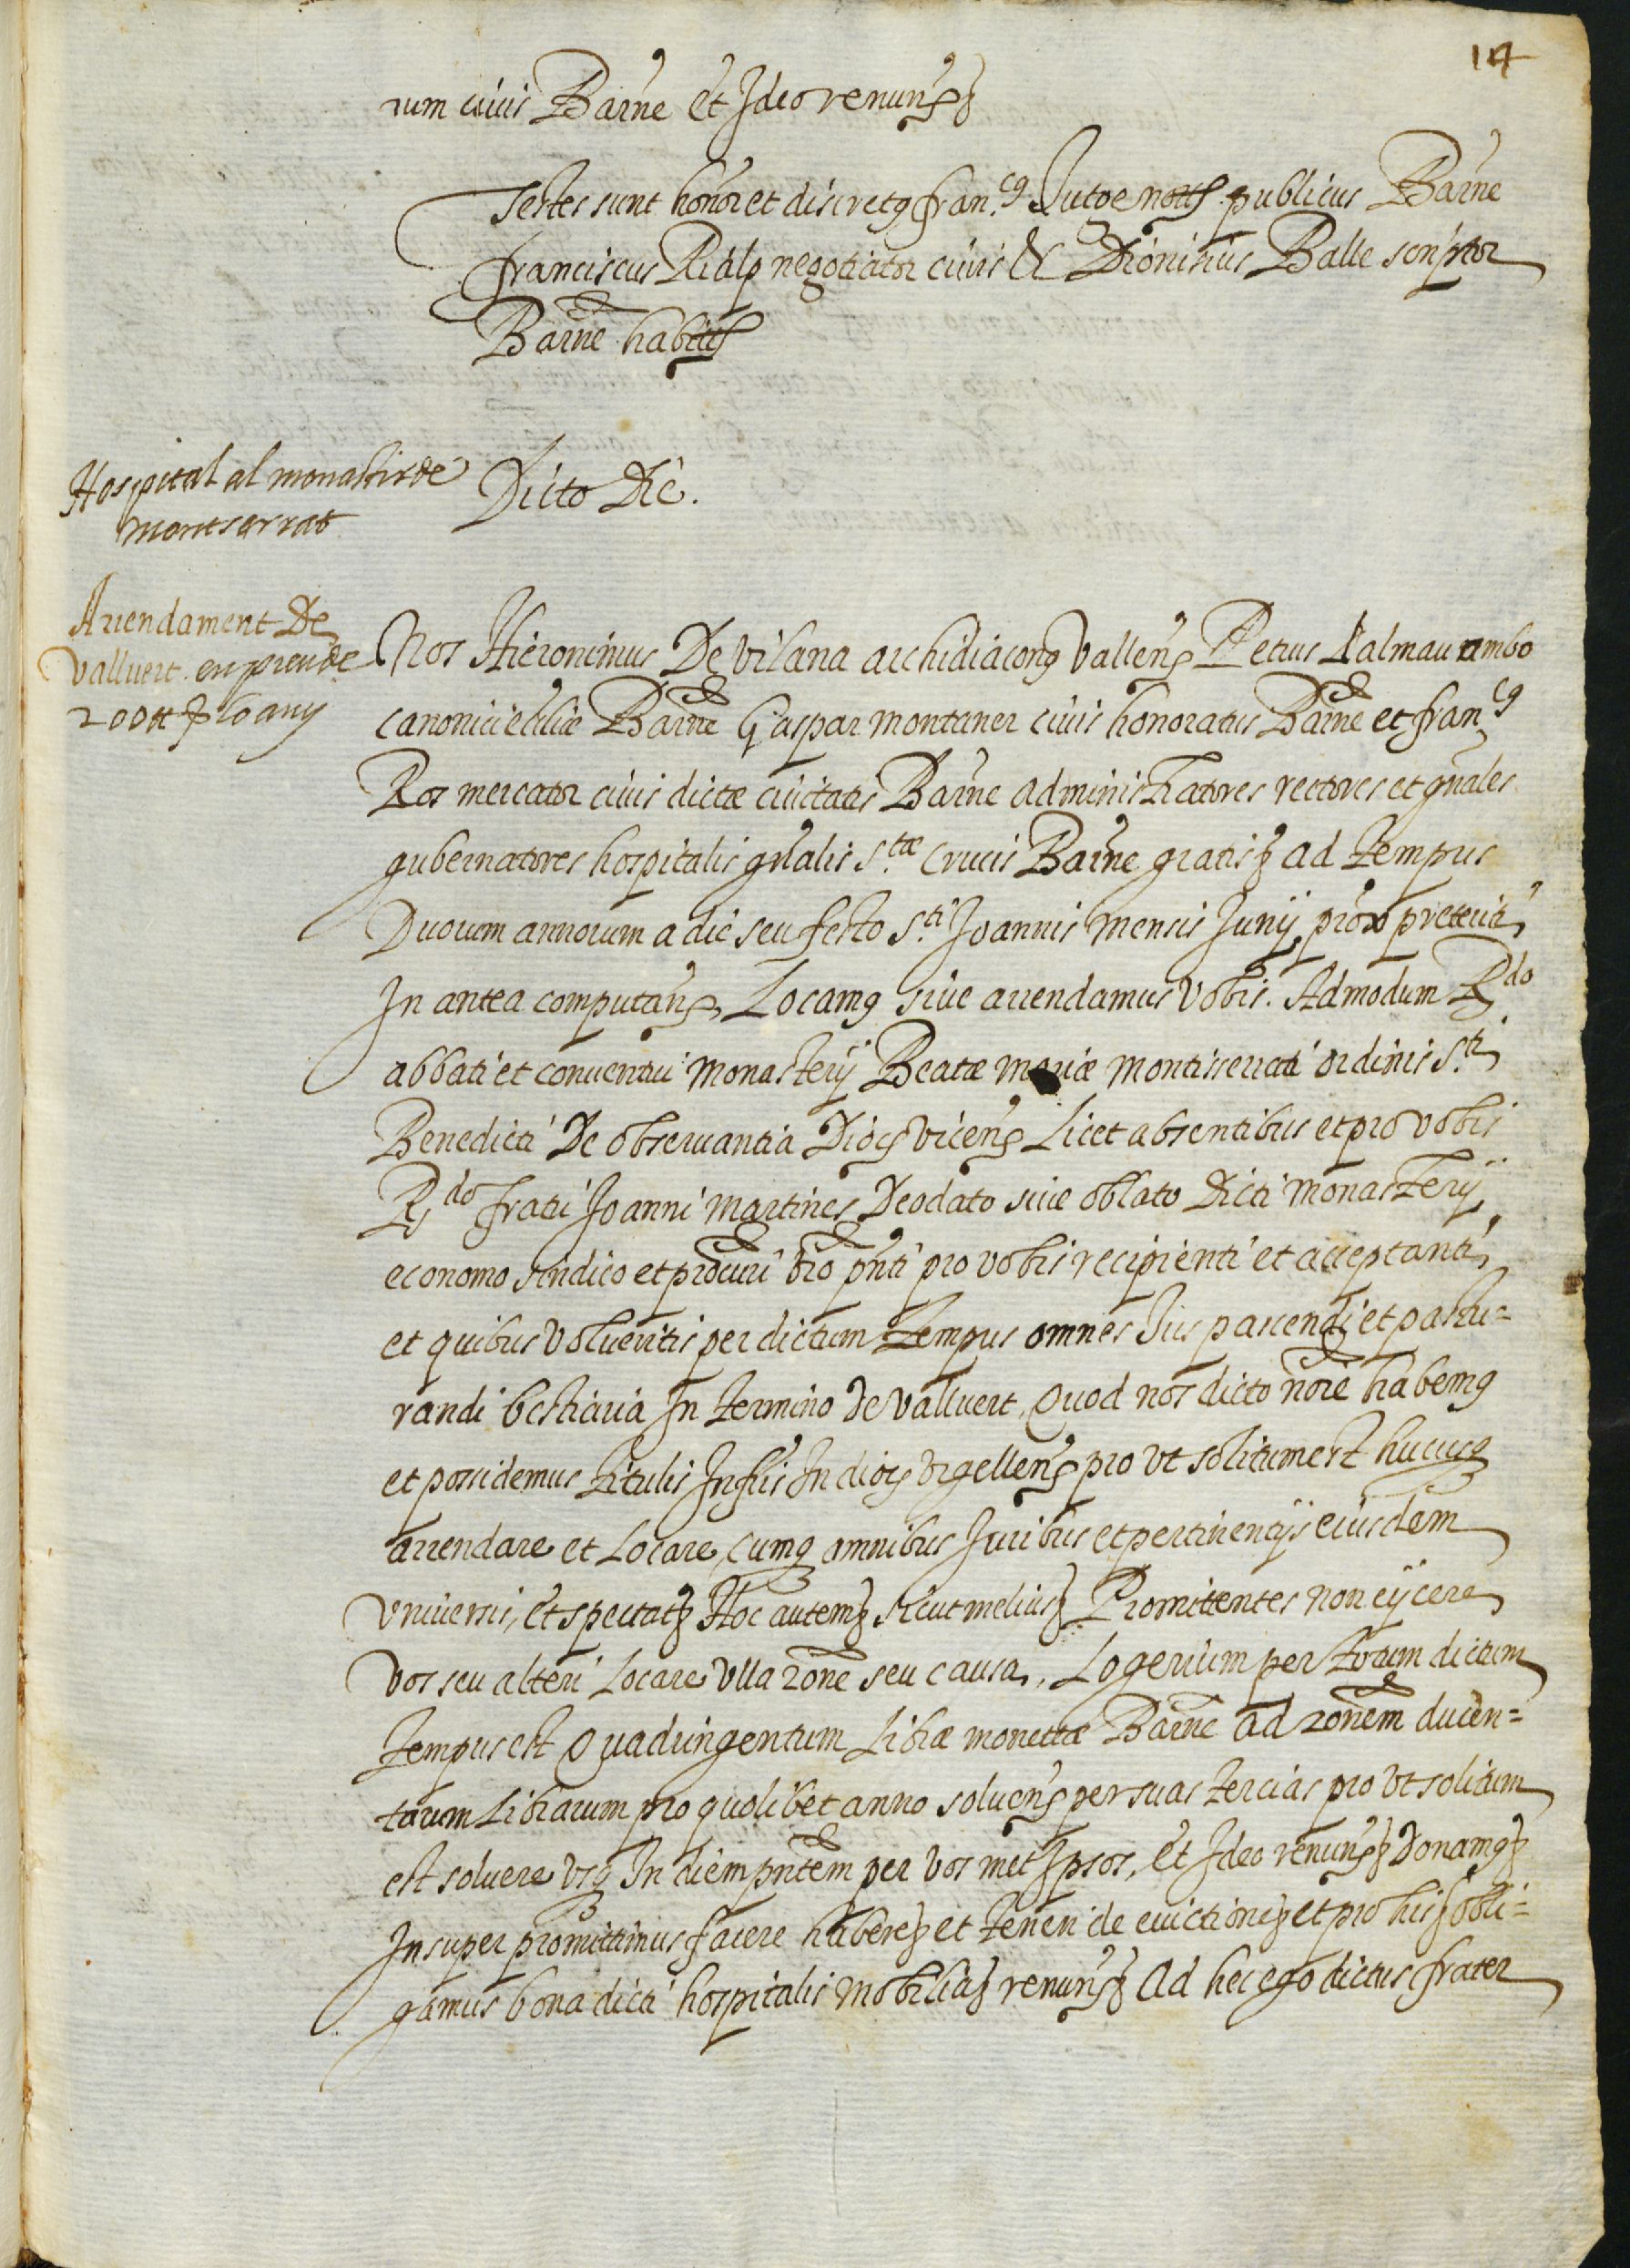 14
rum civis Barne et Ideo renuns
Testes sunt honor et discretus fran.cus Jutge notus publicus Barne
franciscus Rialp negotiator civis & Dionisius Balle scriptor
Barne habits
Hospital al monastir de
montserrat
Dicto Die.
Arrendament De
Vallvert en preu de
200 ll per lo any
Nos Hieronimus De Vilana archidiaconus Vallens Petrus Dalmau ambo
canonici eccliæ Barne Gaspar montaner civis honoratus Barne et fran.cus
Ros mercator civis dictæ civitatis Barne administratores rectores et gnales
gubernatores hospitalis gnalis S.tæ Crucis Barne gratis ad tempus
Duorum annorum a die seu festo S.ti Joannis mensis Junij prox preteriti
In antea computans, Locamus sive arrendamus Vobis. Admodum Rdo
abbati et conventui monasterij Beatæ mariæ montisserrati ordinis S.ti
Benedicti De observantia Dioc Vicens Licet absentibus et pro vobis
Rdo fratri Joanni martines Deodato sive oblato Dicti monasterij
economo sindico et procuri vro pnti pro vobis recipienti et acceptanti,
et quibus Volueritis per dictum tempus omnes Jus pascendi et pastu=
randi bestiaria In termino de Vallvert, Quod nos dicto noie habemus
et possidemus titulis Infris In dioc Vrgellens pro ut solitum est hucusq
arrendare et Locare, cumq omnibus Juribus et pertinentijs eiusdem
Vniversis, et spectat Hoc autem sicut melius Promittentes non eijcere
Vos seu alteri Locare Vlla rone seu causa, Logerium per totum dictum
tempus est Quadringentum Libræ monettæ Barne ad ronem ducen=
tarum Librarum pro quolibet anno solvens per suas tercias pro ut solitum
est solvere Vsq In diem pntem per vos met Ipsos, Et Ideo renuns Donamus
Insuper promittimus facere habere et teneri de evictione et pro his obli=
gamus bona dicti hospitalis mobilia renuns Ad hec ego dictus frater